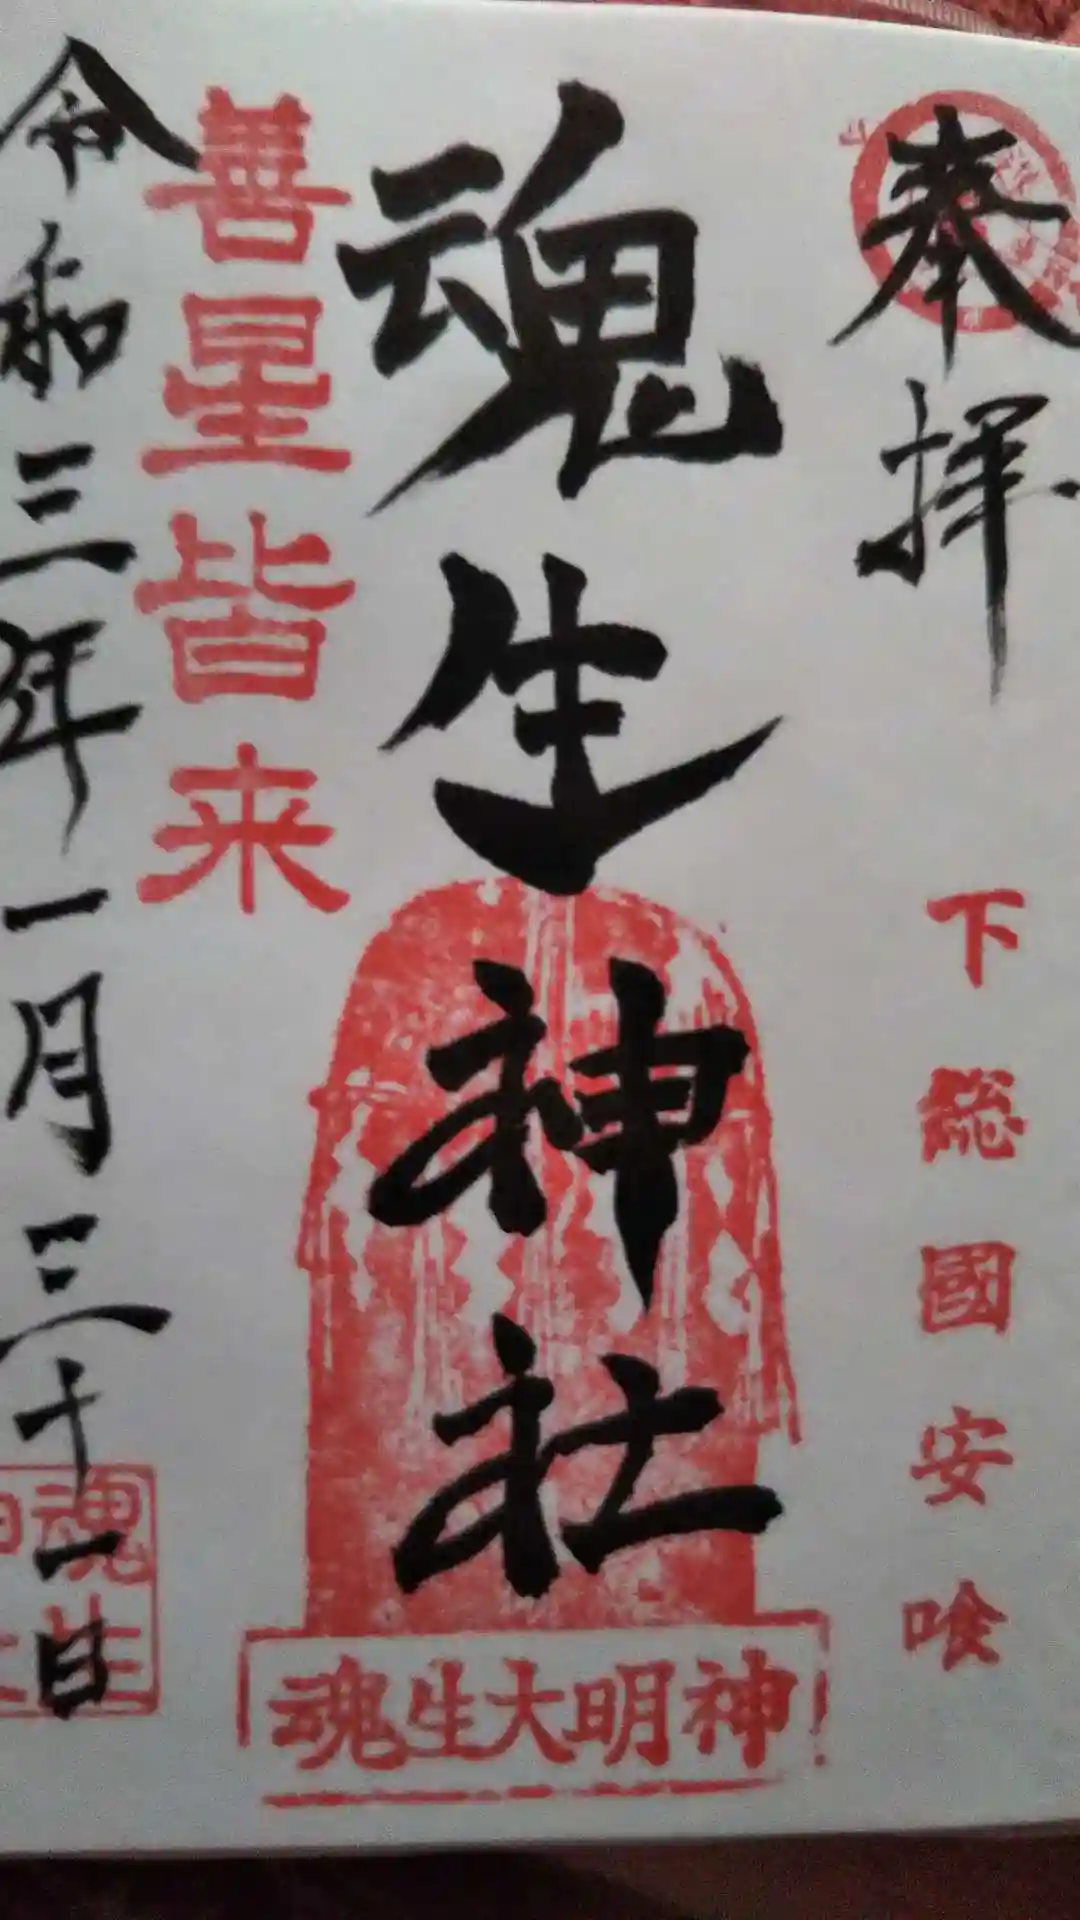 奉拝
下総國安喰
魂生神社
魂生大明神
善星皆来
令和三年一月三十一日
魂生